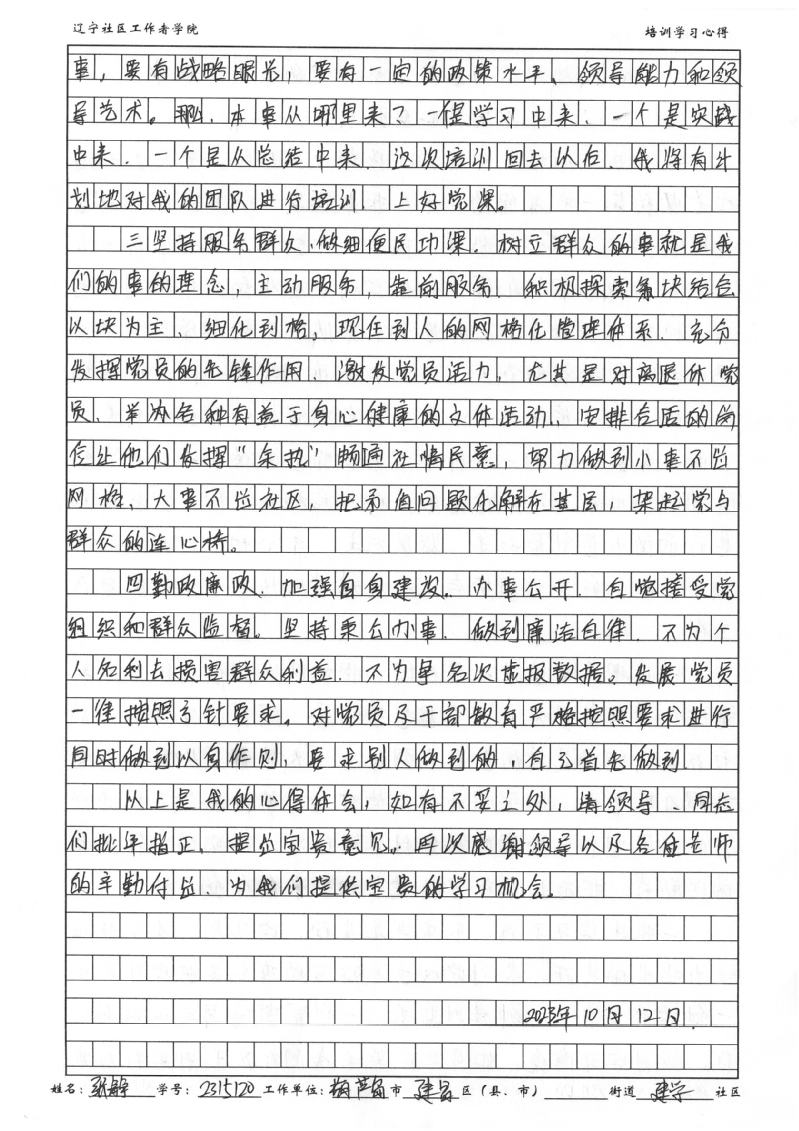 辽宁社区工作者学院 培训学习心得
事,要有战略眼光,要有一定的政策水平、领导能力和领
导艺术。那么,本事从哪里来?一个是学习中来、一个是实战
中来、一个是从总结中来。这次培训回去以后,我将有计
划地对我的团队进行培训、上好党课。
三坚持服务群众、做细便民功课。树立群众的事就是我
们的事的理念,主动服务,靠前服务。积极探索条块结合
以块为主、细化到格,现任到人的网格化管理体系。充分
发挥党员的先锋作用、激发党员活力。尤其是对离退休党
员、举办各种有益于身心健康的文体活动、安排合适的岗
位让他们发挥“余热”畅通社情民意,努力做到小事不出
网格、大事不出社区,把矛盾问题化解在基层,架起党与
群众的连心桥。
四勤政廉政、加强自身建设。办事公开、自觉接受党
组织和群众监督。坚持秉公办事、做到廉洁自律、不为个
人名利去损害群众利益、不为争名次虚报数据。发展党员
一律按照方针要求,对党员及干部教育严格按照要求进行
同时做到以身作则,要求别人做到的,自己首先做到。
以上是我的心得体会,如有不妥之处,请领导、同志
们批评指正,提出宝贵意见。再次感谢领导以及各位老师
的辛勤付出、为我们提供宝贵的学习机会。
2023年10月12日.
姓名: 学号:2315120 工作单位:葫芦岛市建昌区(县、市) 街道 社区